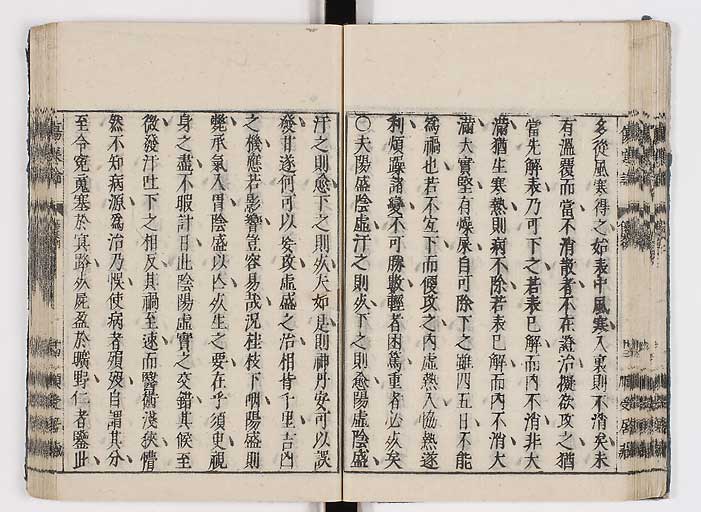 多從風寒得之始表中風寒入裏則不消矣未
有溫覆而當不消散者不在證治擬欲攻之猶
當先解表乃可下之若表已解而內不消非大
滿猶生寒熱則病不除若表已解而內不消大
滿大實堅有燥屎自可除下之雖四五日不能
為禍也若不宜下而便攻之內虛熱入協熱遂
利煩躁諸變不可勝數輕者困篤重者必死矣
〇夫陽盛陰虛汗之則死下之則愈陽虛陰盛
汗之則愈下之則死夫如是則神丹安可以誤
發甘遂何可以妄攻虛盛之治相背千里吉凶
之機應若影響豈容易哉況桂枝下咽陽盛則
斃承氣入胃陰盛以亡死生之要在乎須臾視
身之盡不暇計日此陰陽虛實之交錯其候至
微發汗吐下之相反其禍至速而醫術淺狹懵
然不知病源為治乃悞使病者殞歿自謂其分
至令冤䰟塞於冥路死屍盈於曠野仁者鑒此
傷寒論